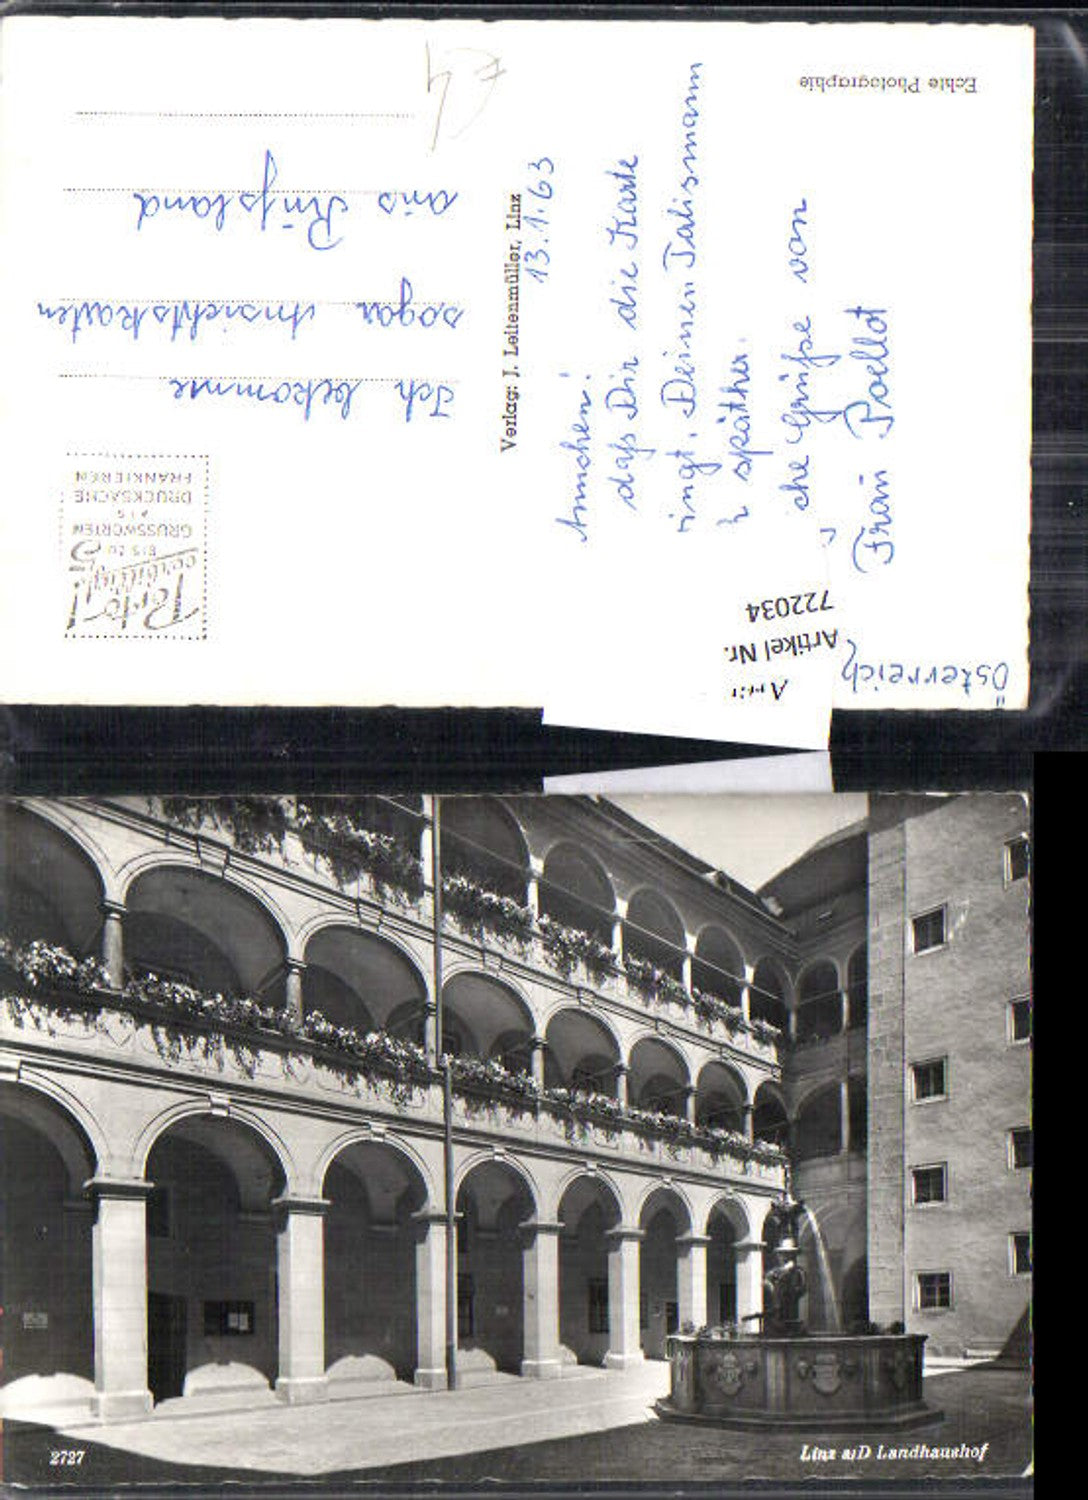 Echte Photographie
13.1.63
Annchen!
daß Dir die Karte
ingt. Deinen Talismann
später.
che Grüße von
Frau Poellot
Verlag: J. Leitenmüller, Linz
Porto!
verbilligt!
BIS ZU 5
GRUSSWORTEN
ALS
DRUCKSACHE
FRANKIEREN
Ich bekomme
sogar Ansichtskarten
aus Rußland
Österreich
Artikel Nr.
722034
2727
Linz a/D Landhaushof